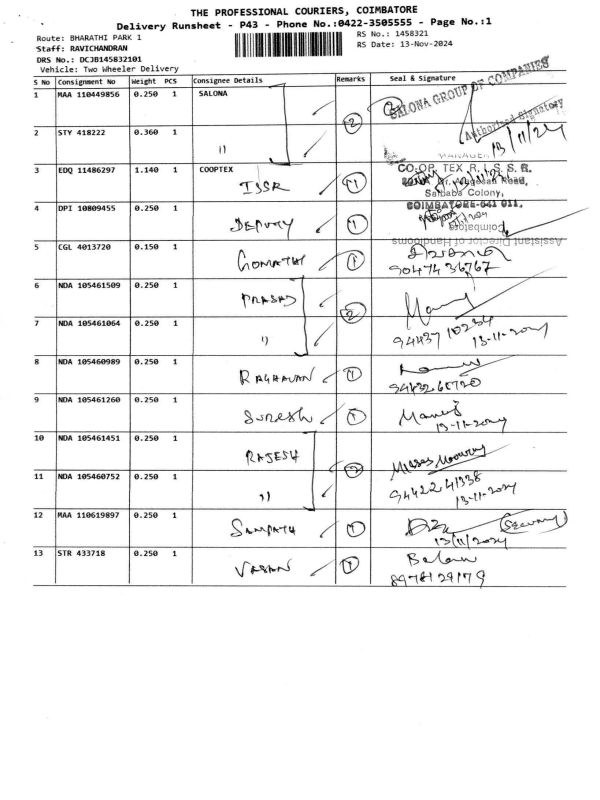 THE PROFESSIONAL COURIERS, COIMBATORE
Delivery Runsheet - P43 - Phone No.:0422-3505555 - Page No.:1
Route: BHARATHI PARK 1
RS No.: 1458321
Staff: RAVICHANDRAN
RS Date: 13-Nov-2024
DRS No.: DCJB145832101
Vehicle: Two Wheeler Delivery
S No Consignment No Weight PCS Consignee Details Remarks Seal & Signature
1 MAA 110449856 0.250 1 SALONA SALONA GROUP OF COMPANIES
2 STY 418222 0.360 1 " 2 Authorised Signatory
13/11/24
MANAGER
3 EDQ 11486297 1.140 1 COOPTEX CO-OP. TEX R.I.S.S.R.
ISSR 1 Road,
Saibaba Colony,
4 DPI 10809455 0.250 1 COIMBATORE-641 011.
DEPUTY 1 Coimbatore
Assistant Director of Handlooms
5 CGL 4013720 0.150 1
GOMATHI 1 90474 36767
6 NDA 105461509 0.250 1
PRASAD 2
7 NDA 105461064 0.250 1 " 94437 10234
13-11-2024
8 NDA 105460989 0.250 1
RAGHAVAN 1
9 NDA 105461260 0.250 1
SURESH 1 13-11-2024
10 NDA 105461451 0.250 1
RAJESH 2
11 NDA 105460752 0.250 1 " 94422 41338
13-11-2024
12 MAA 110619897 0.250 1
SAMPATH 1 (Security)
13/11/2024
13 STR 433718 0.250 1
VASAN 1 8978129179